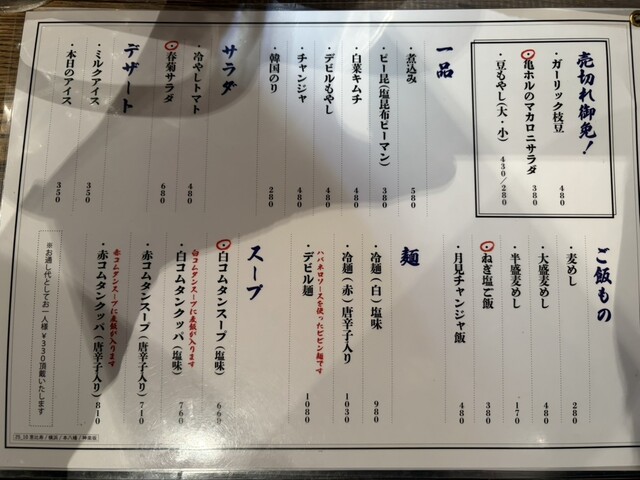 売切れ御免！
・ガーリック枝豆 480
・亀ホルのマカロニサラダ 380
・豆もやし(大・小) 430/280
一品
・煮込み 580
・ピー昆(塩昆布ピーマン) 380
・白菜キムチ 480
・デビルもやし 480
・チャンジャ 480
・韓国のり 280
サラダ
・冷やしトマト 480
・春菊サラダ 680
デザート
・ミルクアイス 350
・本日のアイス 350
ご飯もの
・麦めし 280
・大盛麦めし 480
・半盛麦めし 170
・ねぎ塩こ飯 380
・月見チャンジャ飯 480
麺
・冷麺(白)塩味 980
・冷麺(赤)唐辛子入り 1030
ハバネロソースを使ったビビン麺です
・デビル麺 1080
スープ
・白コムタンスープ(塩味) 660
白コムタンスープに麦飯が入ります
・白コムタンクッパ(塩味) 760
・赤コムタンスープ(唐辛子入り) 710
赤コムタンスープに麦飯が入ります
・赤コムタンクッパ(唐辛子入り) 810
※お通し代としてお一人様￥330頂戴いたします